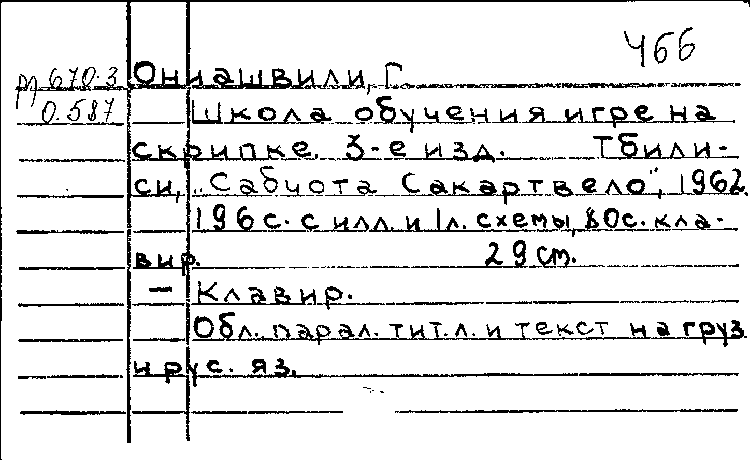 466
670.3 Ониашвили, Г.
0.587 Школа обучения игре на
скрипке. 3-е изд. Тбили-
си, „Сабчота Сакартвело", 1962.
196 с. с илл. и 1л. схемы, 80с. кла-
вир. 29 cm.
— Клавир.
Обл. парал. тит. л. и текст на груз.
и рус. яз.